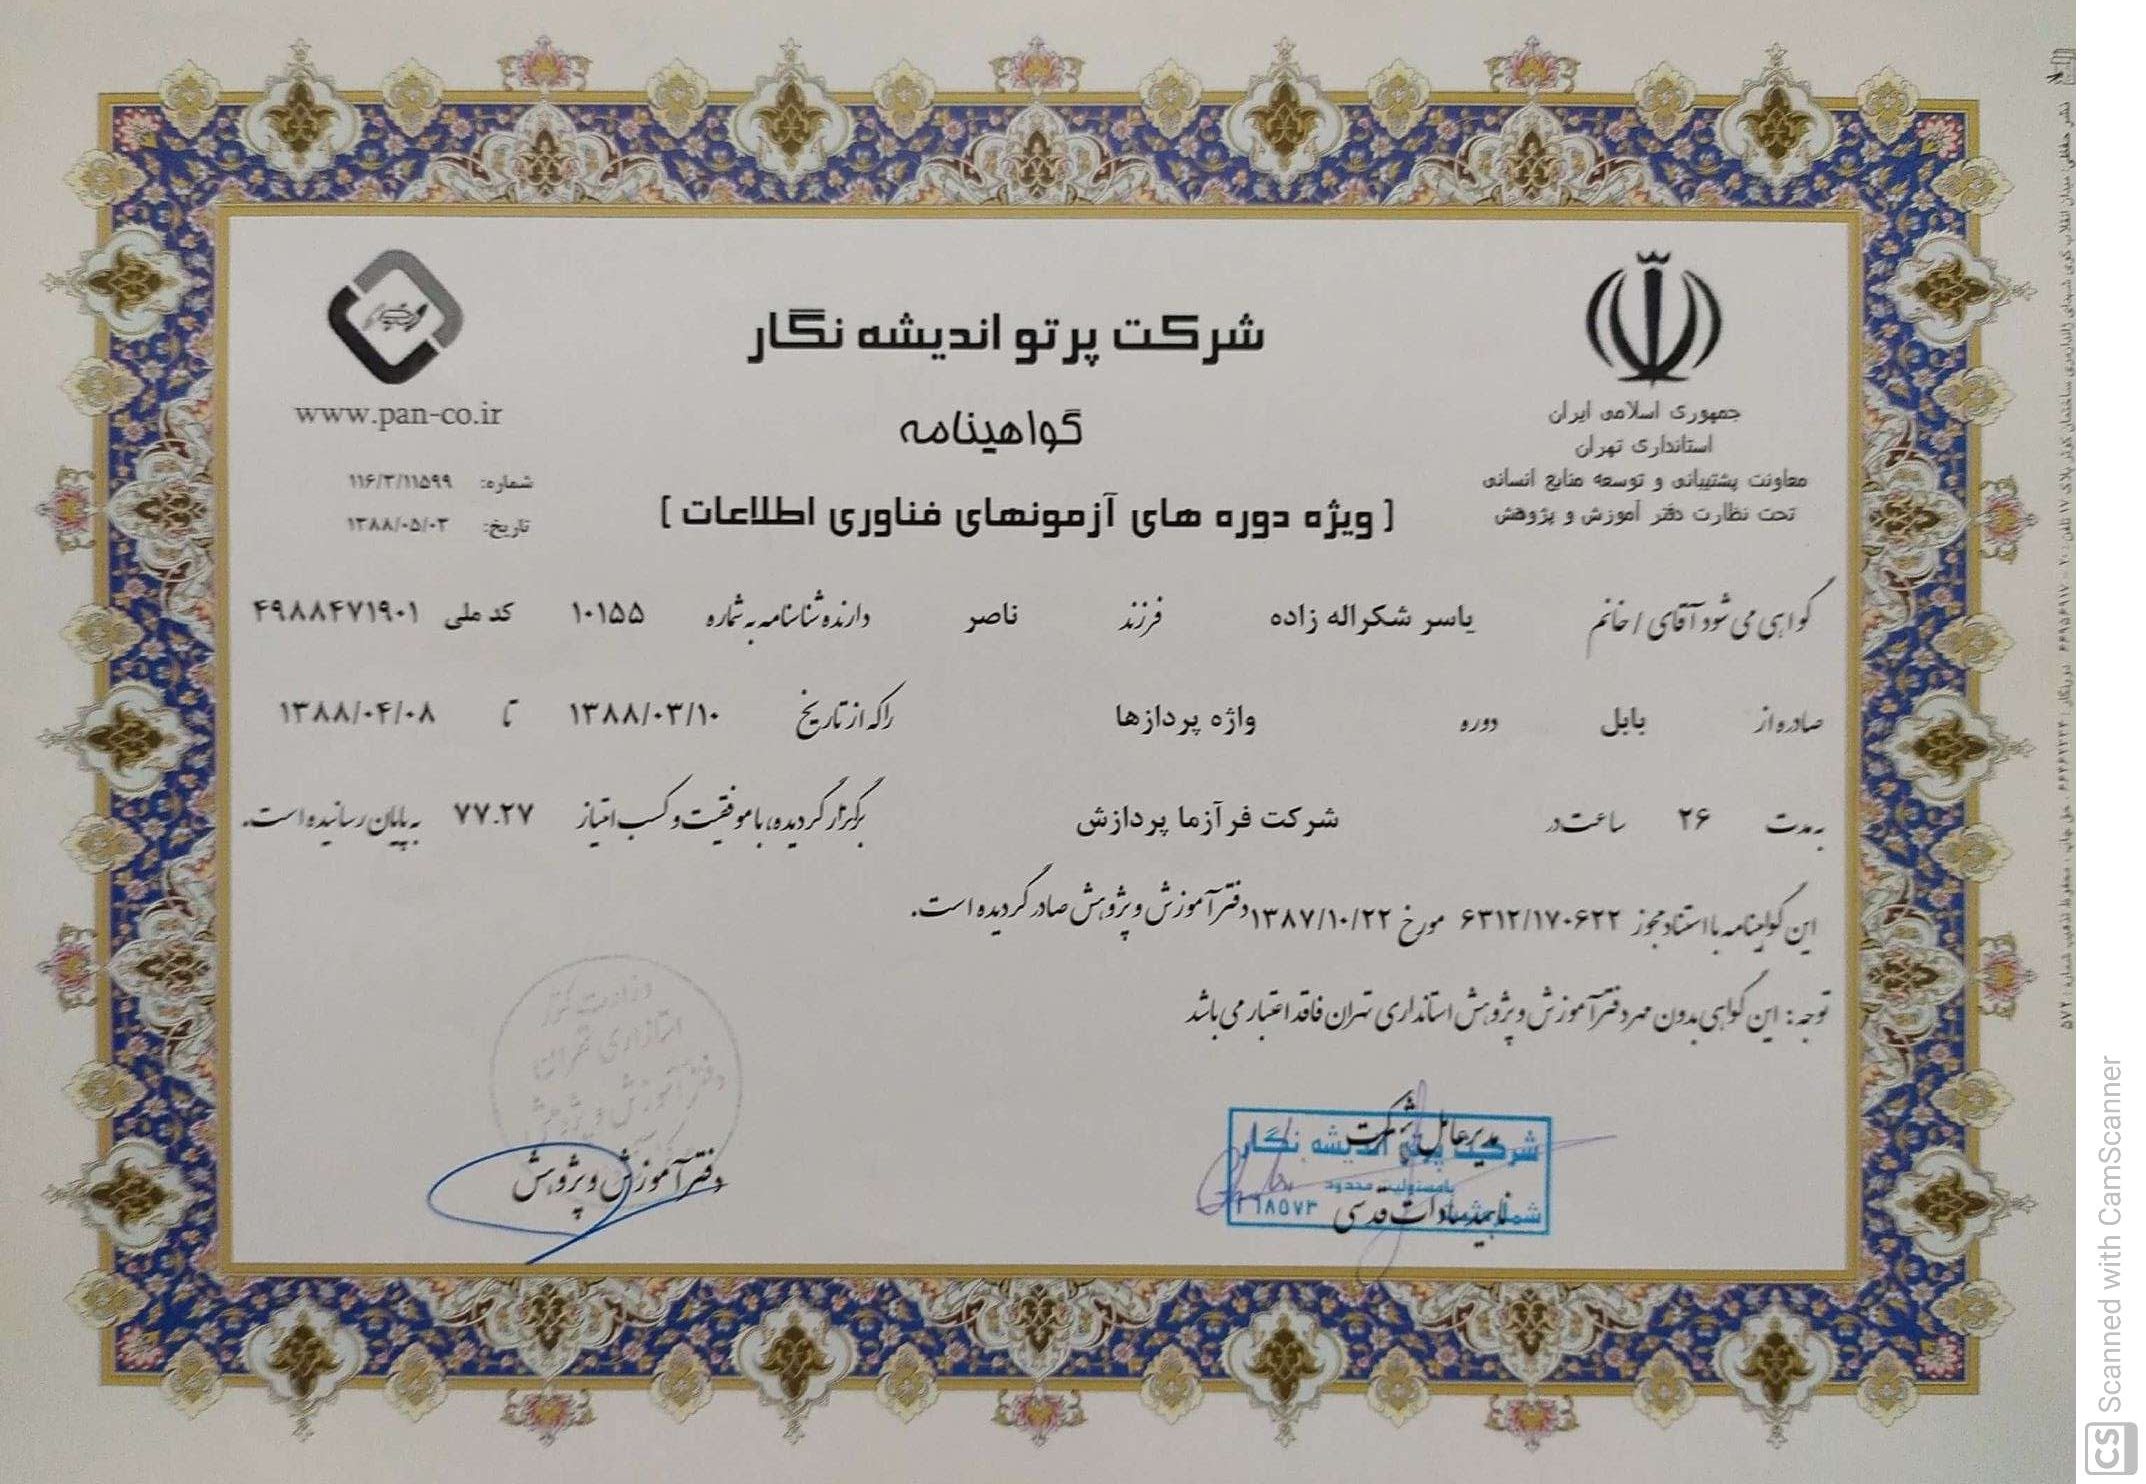 شرکت پرتو اندیشه نگار
گواهینامه
( ویژه دوره های آزمونهای فناوری اطلاعات )
جمهوری اسلامی ایران
استانداری تهران
معاونت پشتیبانی و توسعه منابع انسانی
تحت نظارت دفتر آموزش و پژوهش
www.pan-co.ir
شماره: ۱۱۶/۳/۱۱۵۹۹
تاریخ: ۱۳۸۸/۰۵/۰۳
گواهی می شود آقای / خانم یاسر شکراله زاده فرزند ناصر دارنده شناسنامه به شماره ۱۰۱۵۵ کد ملی ۴۹۸۸۴۷۱۹۰۱
صادره از بابل دوره واژه پردازها را که از تاریخ ۱۳۸۸/۰۳/۱۰ تا ۱۳۸۸/۰۴/۰۸
به مدت ۲۶ ساعت در شرکت فرآزما پردازش برگزار گردیده، با موفقیت و کسب امتیاز ۷۷.۲۷ به پایان رسانیده است.
این گواهینامه با استناد مجوز ۶۳۱۲/۱۷۰۶۲۲ مورخ ۱۳۸۷/۱۰/۲۲ دفتر آموزش و پژوهش صادر گردیده است.
توجه: این گواهی بدون مهر دفتر آموزش و پژوهش استانداری تهران فاقد اعتبار می باشد
وزارت کشور
استانداری تهران
دفتر آموزش و پژوهش
دفتر آموزش و پژوهش
مدیر عامل شرکت
ناهید سادات قدسی
شرکت پرتو اندیشه نگار
بامسئولیت محدود
CS Scanned with CamScanner